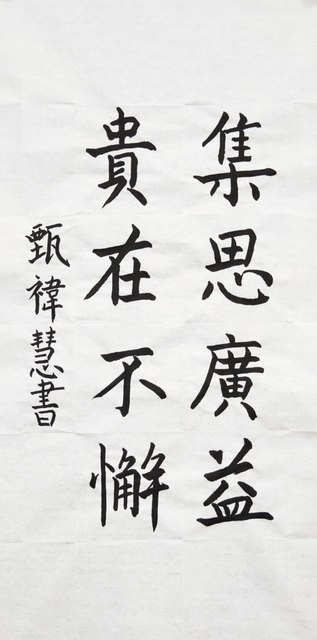 集思廣益
貴在不懈
甄褘慧書